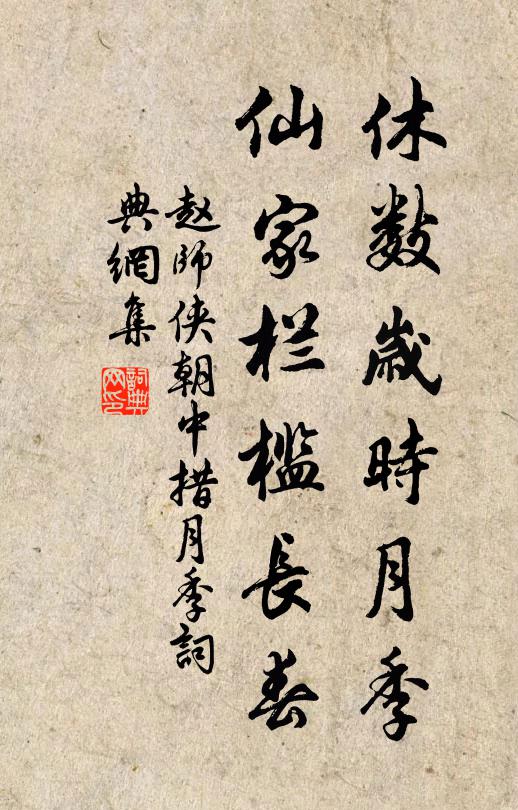 休数歲時月季
仙家栏檻長春
赵師侠朝中措月季詞
典網集
詞典網印